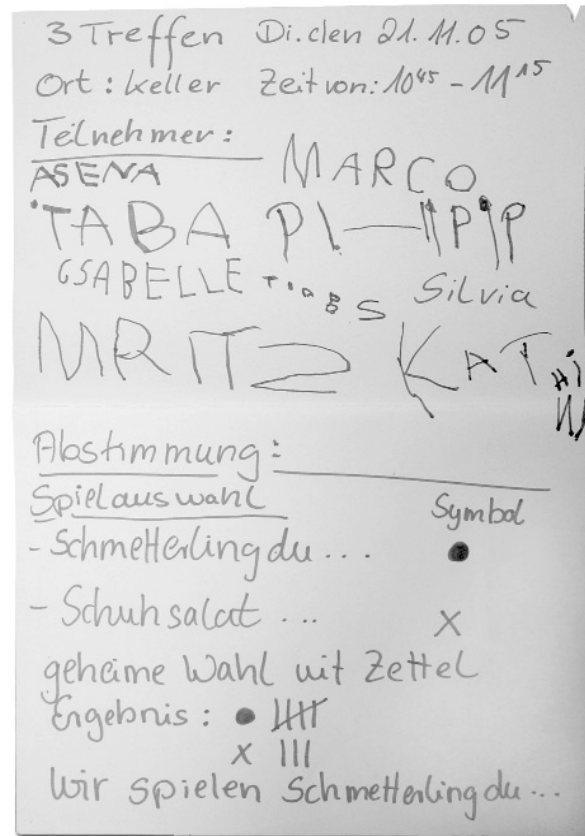 3 Treffen Di. den 21.11.05
Ort: Keller Zeit von: 10⁴⁵ - 11¹⁵
Teilnehmer:
ASENA MARCO
TABA
GSABELLE Silvia
MRITZ KAT
Abstimmung:
Spielauswahl Symbol
- Schmetterling du ... ●
- Schuhsalat ... X
geheime Wahl mit Zettel
Ergebnis: ● 卌
X III
Wir spielen Schmetterling du ...